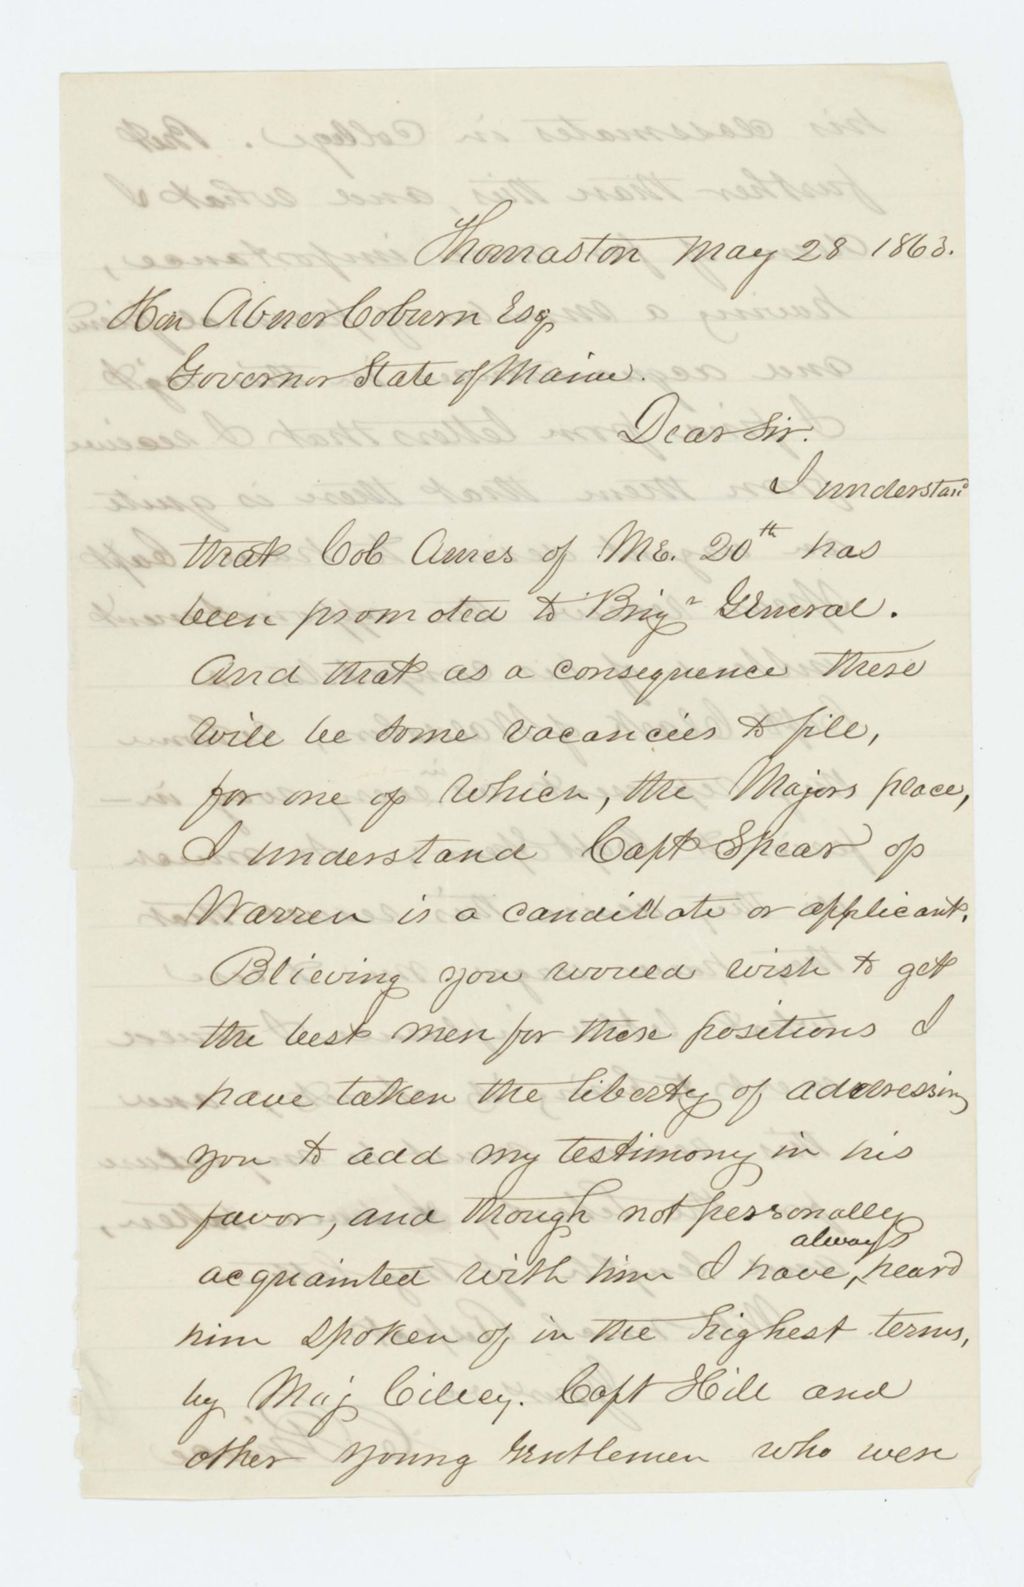 Thomaston May 28 1863.
Hon Abner Coburn Esq
Governor State of Maine.
Dear Sir.
I understand
that Col Ames of ME. 20th has
been promoted to Brigr General.
And that as a consequence there
will be some vacancies to fill,
for one of which, the Majors place,
I understand Capt Spear of
Warren is a candidate or applicant.
Blieving you would wish to get
the best men for these positions I
have taken the liberty of addressing
you to add my testimony in his
favor, and though not personally
acquainted with him I have always heard
him spoken of in the highest terms,
by Maj Cilley. Capt Hill and
other young Gentlemen who were